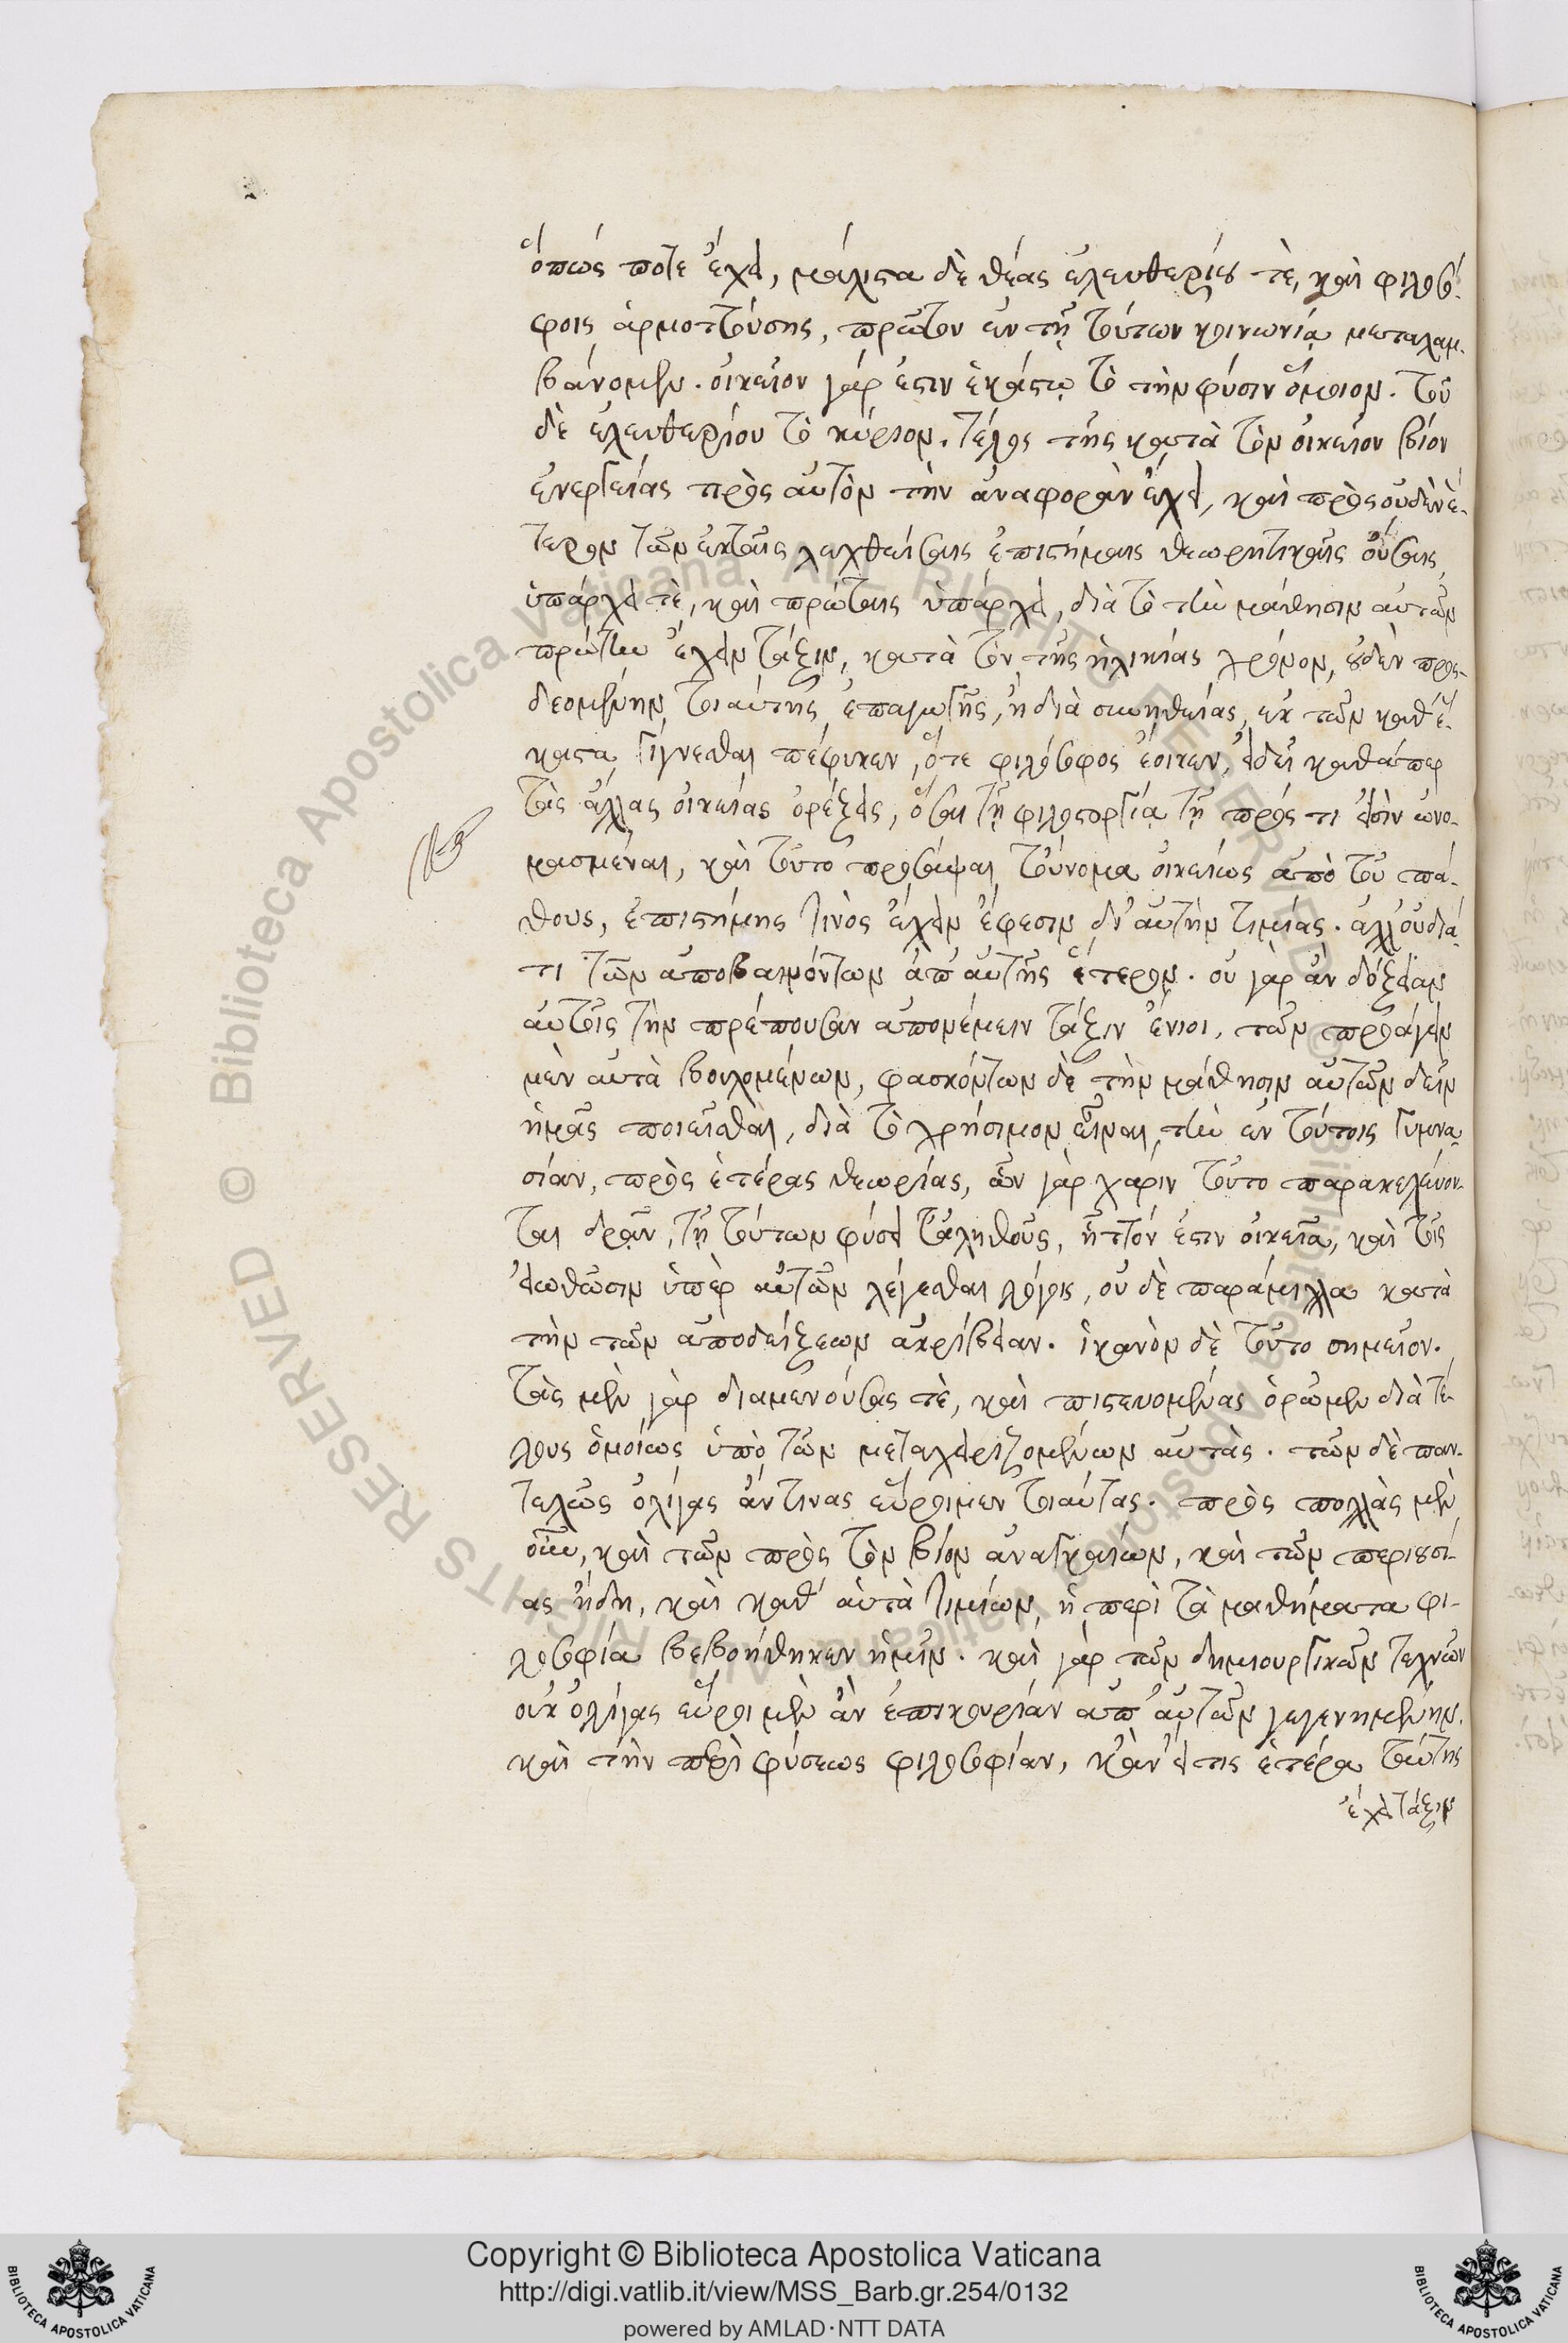 ὅπώς ποτε ἔχει, μάλιστα δὲ θέας ἐλευθερίοις τὲ, καὶ φιλοσό-
φοις ἁρμοττούσης, πρῶτον ἐν τῇ τούτων κοινωνίᾳ μεταλαμ-
βάνομεν. οἰκεῖον γάρ ἐστιν ἑκάστῳ τὸ τὴν φύσιν ὅμοιον. τοῦ
δὲ ἐλευθερίου τὸ κύριον. τέλος τῆς κατὰ τὸν οἰκεῖον βίον
ἐνεργείας πρὸς αὐτὸν τὴν ἀναφορὰν ἔχει, καὶ πρὸς οὐδὲν ἕ-
τερον τῶν ἐκτὸς λεχθείσαις ἐπιστήμαις θεωρητικαῖς οὔσαις,
ὑπάρχει τὲ, καὶ πρώταις ὑπάρχει, διὰ τὸ τὴν μάθησιν αὐτῶν
πρώτην ἔχειν τάξιν, κατὰ τὸν τῆς ἡλικίας χρόνον, οὐδὲν προσ-
δεομένην τοιαύτης ἐπαγωγῆς, ἣ διὰ συνηθείας, ἐκ τῶν καθ' ἕ-
καστα γίγνεσθαι πέφυκεν, ὅτε φιλόσοφος ἔοικεν, εἰ δεῖ καθάπερ
τὰς ἄλλας οἰκείας ὀρέξεις, ὅσαι τῇ φιλοστοργίᾳ τῇ πρός τι εἰσὶν ὠνο-
μασμέναι, καὶ τοῦτο προσάψαι τοὔνομα οἰκείως ἀπὸ τοῦ πά-
θους, ἐπιστήμης τινὸς ἔχειν ἔφεσιν δι' αὐτὴν τιμίας. ἀλλ' οὐ διά
τι τῶν ἀποβαινόντων ἀπ' αὐτῆς ἕτερον. οὐ γὰρ ἂν δόξειαν
αὐτοῖς τὴν πρέπουσαν ἀπονέμειν τάξιν ἔνιοι, τῶν προσάγειν
μὲν αὐτὰ βουλομένων, φασκόντων δὲ τὴν μάθησιν αὐτῶν δεῖν
ἡμᾶς ποιεῖσθαι, διὰ τὸ χρήσιμον εἶναι τὴν ἐν τούτοις γυμνα
σίαν, πρὸς ἑτέρας θεωρίας, ὧν γὰρ χάριν τοῦτο παρακελεύον-
ται δρᾶν, τῇ τούτων φύσει τἀληθοῦς, ἧττόν ἐστιν οἰκεῖα, καὶ τοῖς
εἰωθόσιν ὑπὲρ αὐτῶν λέγεσθαι λόγοις, οὐ δὲ παράμιλλα κατὰ
τὴν τῶν ἀποδείξεων ἀκρίβειαν. ἱκανὸν δὲ τοῦτο σημεῖον.
τὰς μὲν γὰρ διαμενούσας τὲ, καὶ πιστευομένας ὁρῶμεν διὰ τέ-
λους ὁμοίως ὑπὸ τῶν μεταχειριζομένων αὐτὰς. τῶν δὲ παν-
τελῶς ὀλίγας ἄν τινας εὕροιμεν τοιαύτας. πρὸς πολλὰς μὲν
οὖν, καὶ τῶν πρὸς τὸν βίον ἀναγκαίων, καὶ τῶν περιουσί-
ας ἤδη, καὶ καθ' αὑτὰ τιμίων, ἡ περὶ τὰ μαθήματα φι-
λοσοφία βεβοήθηκεν ἡμῖν. καὶ γὰρ τῶν δημιουργικῶν τεχνῶν
οὐκ ὀλίγας εὕροιμεν ἂν ἐπικουρίαν ἀπ' αὐτῶν γεγενημένην.
καὶ τὴν περὶ φύσεως φιλοσοφίαν, κἂν εἴ τις ἑτέρα ταύτης
ἔχει τάξιν
© Biblioteca Apostolica Vaticana ALL RIGHTS RESERVED
Copyright © Biblioteca Apostolica Vaticana
http://digi.vatlib.it/view/MSS_Barb.gr.254/0132
powered by AMLAD·NTT DATA
BIBLIOTECA APOSTOLICA VATICANA
BIBLIOTECA APOSTOLICA VATICANA